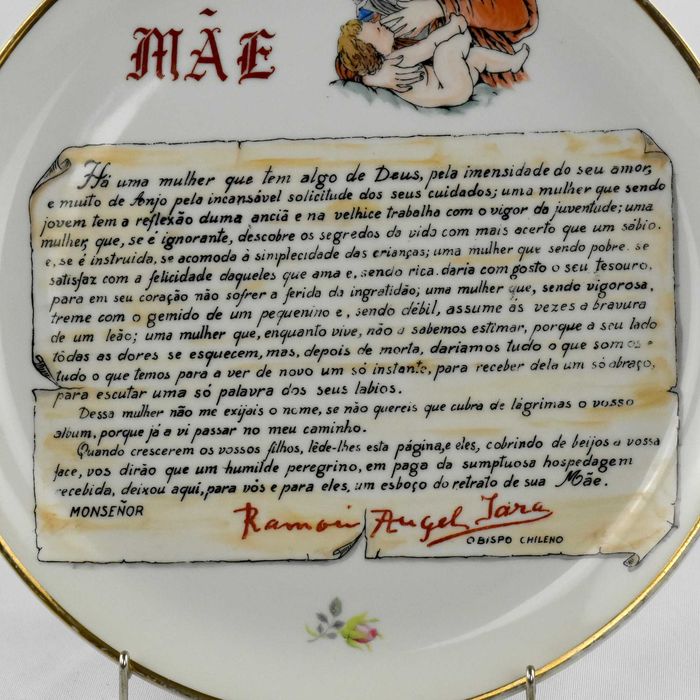 MÃE
Há uma mulher que tem algo de Deus, pela imensidade do seu amor,
e muito de Anjo pela incansável solicitude dos seus cuidados; uma mulher que sendo
jovem tem a reflexão duma anciã e na velhice trabalha com o vigor da juventude; uma
mulher, que, se é ignorante, descobre os segredos da vida com mais acerto que um sábio.
e, se é instruida, se acomoda à simplecidade das crianças; uma mulher que sendo pobre. se
satisfaz com a felicidade daqueles que ama e, sendo rica. daria com gosto o seu tesouro,
para em seu coração não sofrer a ferida da ingratidão; uma mulher que, sendo vigorosa,
treme com o gemido de um pequenino e, sendo débil, assume às vezes a bravura
de um leão; uma mulher que, enquanto vive, não a sabemos estimar, porque a seu lado
tôdas as dores se esquecem, mas, depois de morta, dariamos tudo o que somos e
tudo o que temos para a ver de novo um só instante, para receber dela um só abraço,
para escutar uma só palavra dos seus labios.
Dessa mulher não me exijais o nome, se não quereis que cubra de lágrimas o vosso
album, porque já a vi passar no meu caminho.
Quando crescerem os vossos filhos, lêde-lhes esta página, e eles, cobrindo de beijos a vossa
face, vos dirão que um humilde peregrino, em paga da sumptuosa hospedagem
recebida, deixou aqui, para vós e para eles, um esboço do retrato de sua Mãe.
MONSEÑOR
Ramon Angel Jara
OBISPO CHILENO